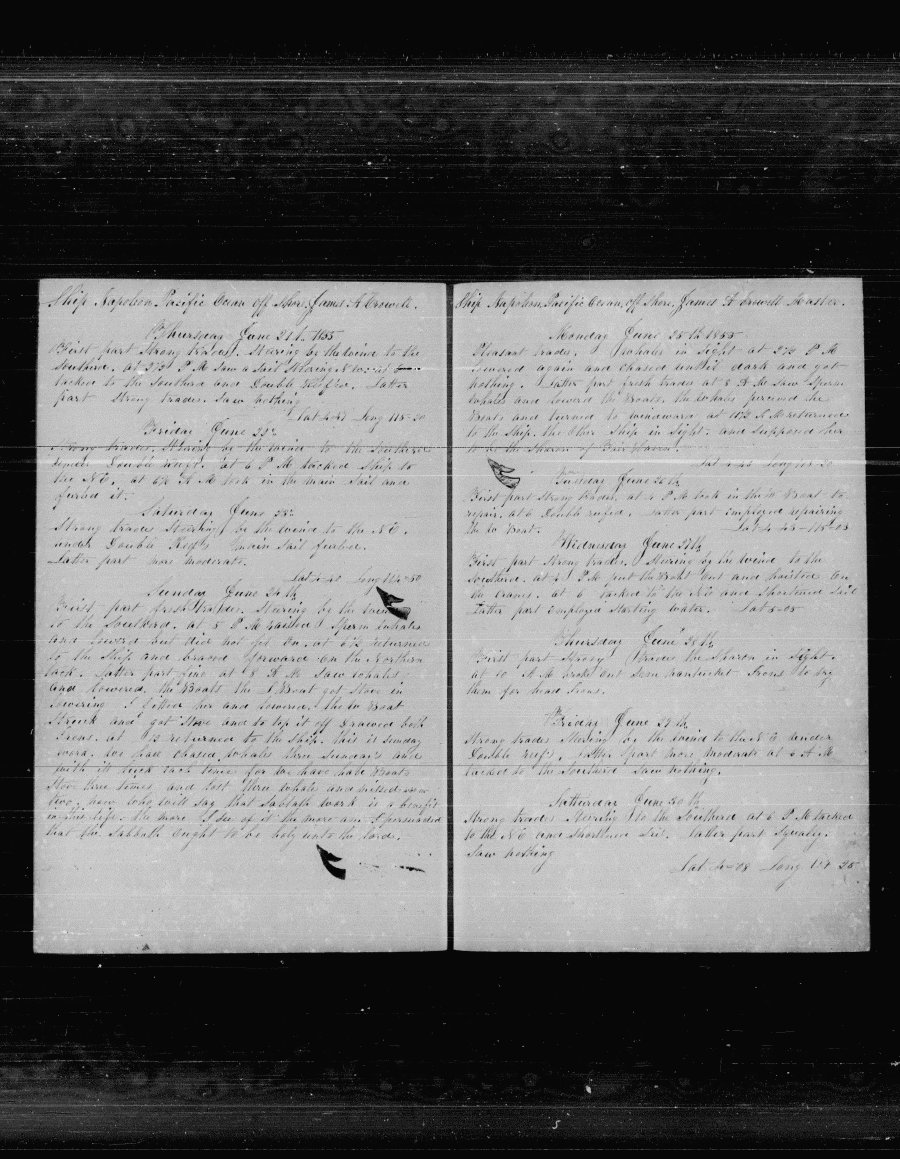 Ship Napoleon Pacific Ocean off Shore, James A Crowell.
Thursday June 21st 1855
First part Strong trades. Steering by the wind to the
Southerd. at 2½ P M Saw a Sail Steering N W. at 6
tacked to the Southerd and Double reefed. Latter
part Strong trades. Saw nothing
Lat 4-47 Long 118-20
Friday June 22
Strong trades. Steering by the wind to the Southerd
under Double reefs. at 6 P M tacked Ship to
the N E. at 6½ A M took in the main Sail and
furled it.
Saturday June 23
Strong trades Steering by the wind to the N E.
under Double Reefs main Sail furled.
Latter part more moderate.
Lat 4-40 Long
Sunday June 24th
First part fresh trades. Steering by the wind
to the Southerd. at 5 P M raised Sperm whales
and lowerd but did not get on. at 6½ returned
to the Ship and braced forward on the Northern
tack. Latter part fine at 8 A M Saw whales
and lowered the Boats the Boat got Stove in
lowering I fitted her and lowered. the W Boat
Struck and got Stove and to top it off drawed both
Irons. at 12 returned to the Ship. this is Sunday
work, we have chased whales three Sundays and
with it luck each time for we have had Boats
Stove three times and lost three whale and missed
two, now who will say that Sabbath work is a benefit
in this life. the more I See of it the more am I persuaded
that the Sabbath Ought to be holy unto the Lord.
Ship Napoleon Pacific Ocean, off Shore, James A Crowell Master.
Monday June 25th 1855
Pleasant trades. Whales in Sight at 2½ P M
lowered again and chased until dark and got
nothing. Latter part fresh trades at 8 A M Saw Sperm
whales and lowerd the Boats. the whales percived the
Boats and turned to windward at 11½ A M returned
to the Ship. the Other Ship in Sight. and Supposed her
to be the Sharon of Fair Haven.
Lat 4-43 Long
Tuesday June 26th
First part Strong trades. at 4 P M took in the W Boat to
repair. at 6 Double reefed. Latter part Employed repairing
the W Boat.
Wednesday June 27th
First part Strong trades. Steering by the wind to the
Southerd. at 4 P M put the Boat Out and hoisted On
the cranes. at 6 tacked to the N E and Shortened Sail
Latter part Employed Starting water.
Thursday June 28th
First part Strong trades the Sharon in Sight.
at 10 A M Broke out Some Nantucket Irons to try
them for head Irons.
Friday June 29th
Strong trades Steering by the wind to the N E under
Double reefs. Latter part more moderate at 6 A M
tacked to the Southerd Saw nothing.
Satturday June 30th
Strong trades Steering to the Southerd at 6 P M tacked
to the N E and Shortened Sail. Latter part Squaly.
Saw nothing
Lat 4-08 Long